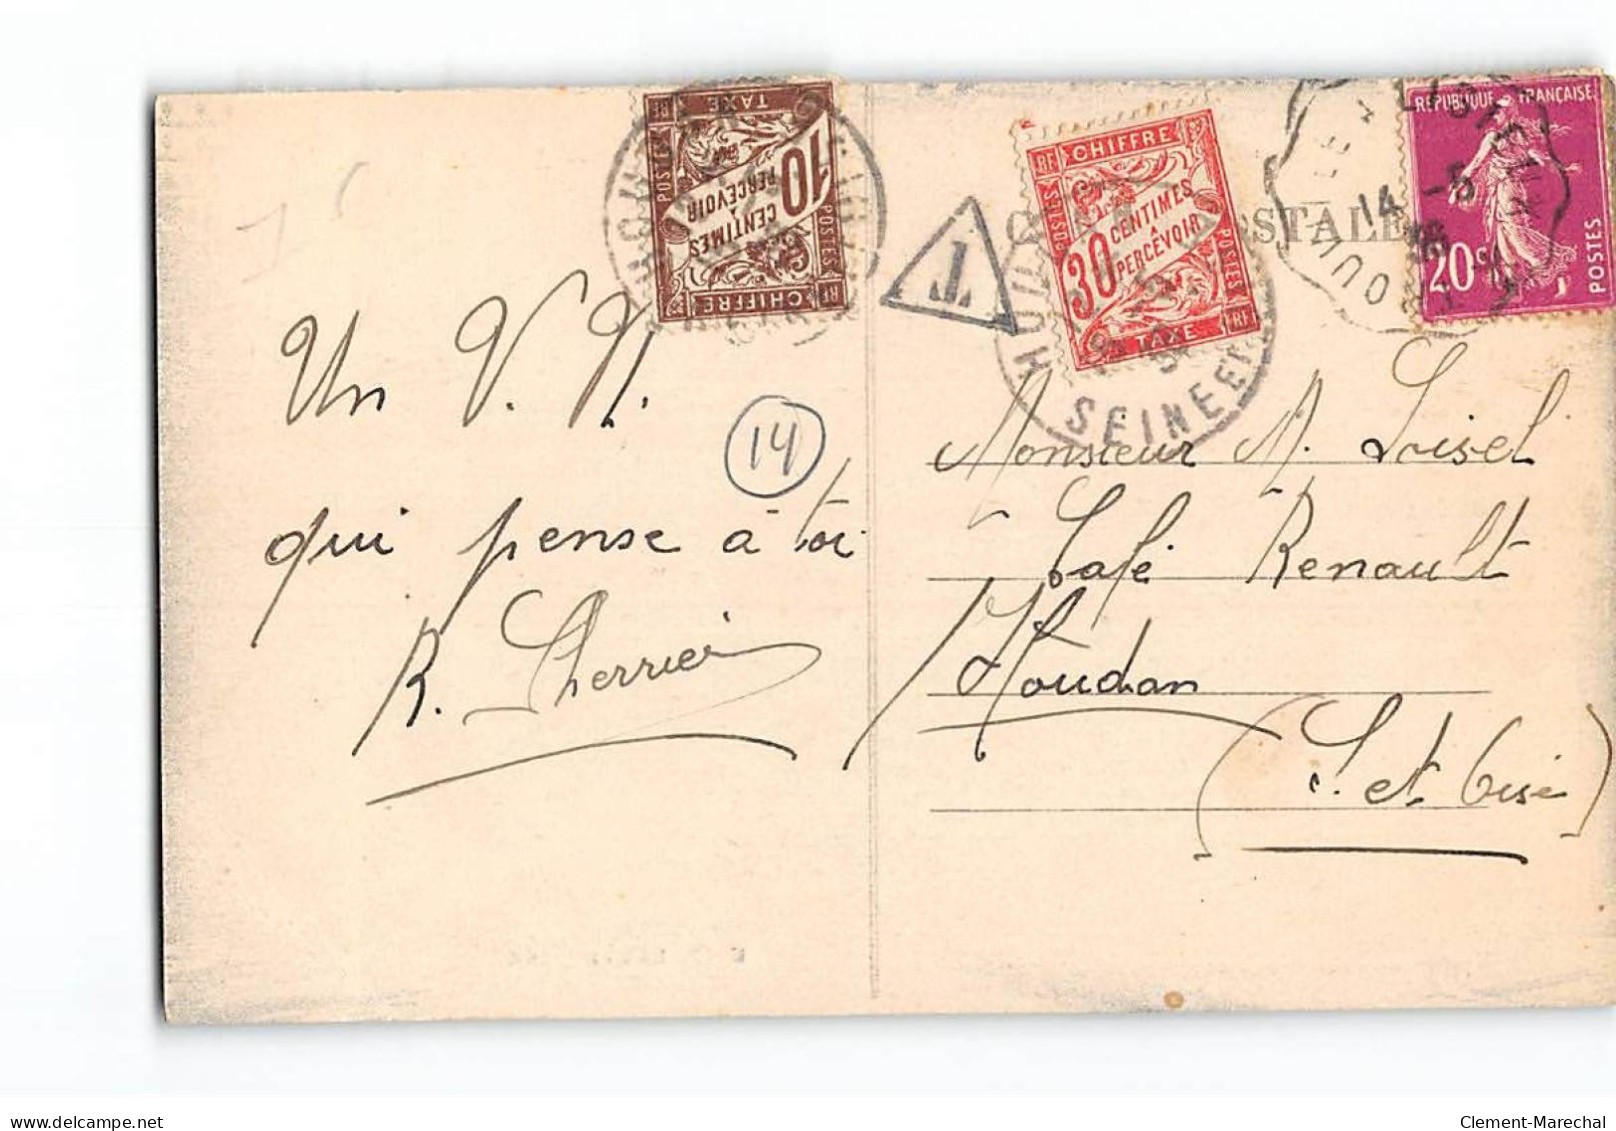 CHIFFRE
TAXE
RF
POSTES
10
CENTIMES
A
PERCEVOIR
HOUDAN
CHIFFRE
TAXE
RF
POSTES
30
CENTIMES
A
PERCEVOIR
SEINE ET
T
STALE
REPUBLIQUE FRANÇAISE
20c
POSTES
14 -5
Un V. N.
14
qui pense à toi
R. Cherrier
Monsieur M. Loisel
Café Renault
Houdan
(S. et Oise)
delcampe.net
Clement-Marechal